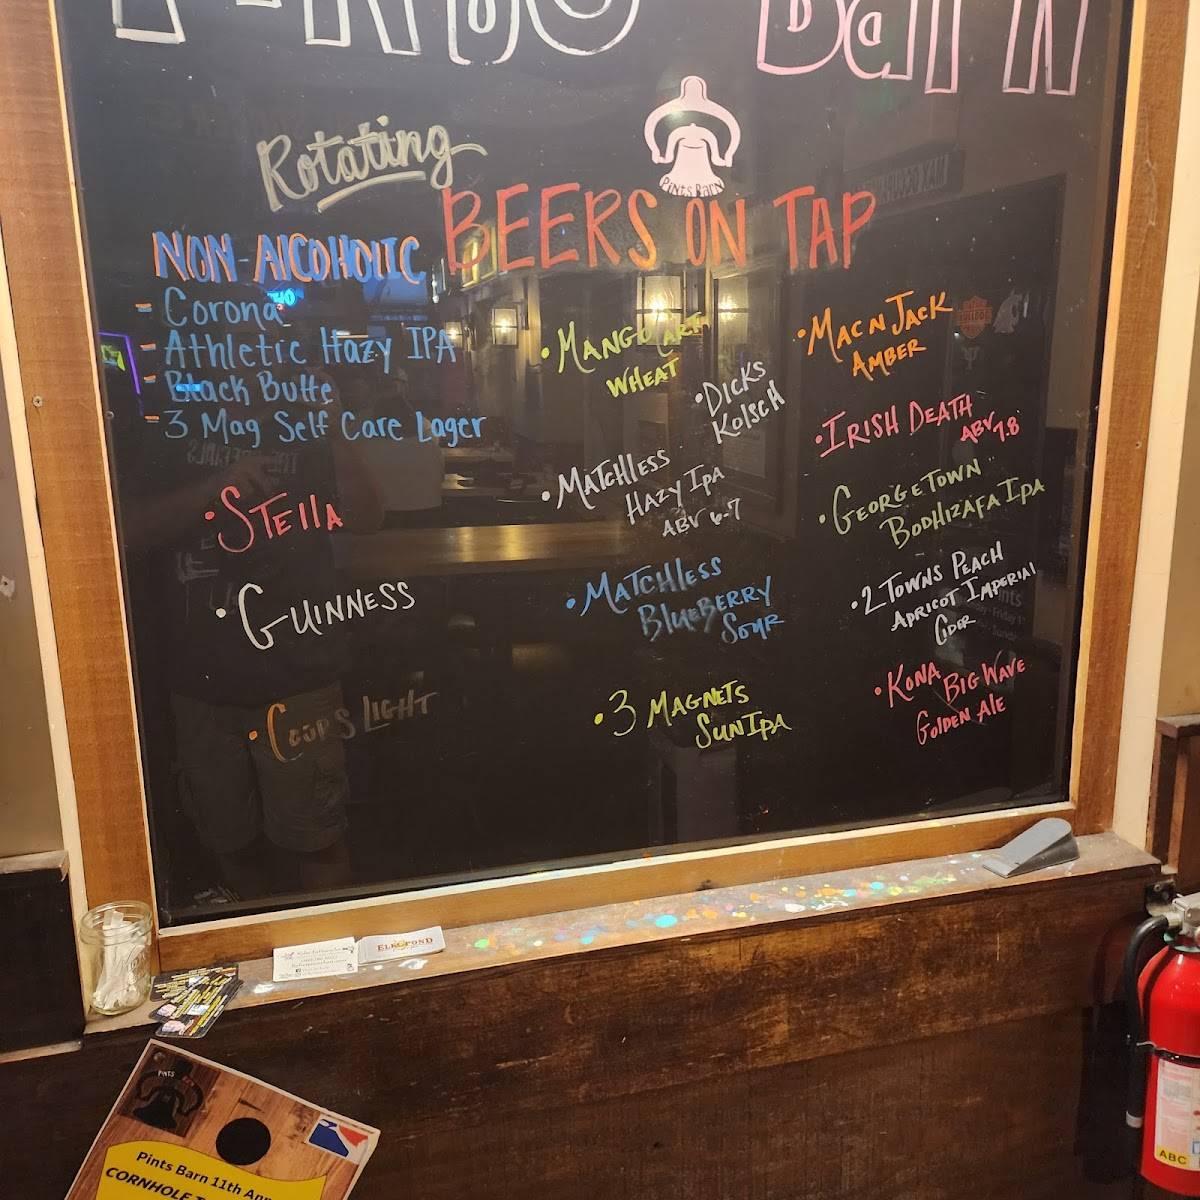 Pints Barn
Rotating
PINTS BARN
BEERS ON TAP
NON-AlCOHOlIC
- Corona
- Athletic Hazy IPA
- Black Butte
- 3 Mag Self Care Lager
• STella
• GUINNESS
• COORS LIGHT
• MANGO CART
WHEAT
• DICKS
KOlSCH
• MATCHlESS
HAZY IPA
ABV 6.7
• MATCHlESS
BlUEBERRY
SOUR
• 3 MAGNETS
SUN IPA
• MAC N JACK
AMBER
• IRISH DEATH
ABV 7.8
• GEORGETOWN
BODHIZAFA IPA
• 2 TOWNS PEACH
APRICOT IMPERIAl
CIDER
• KONA BIG WAVE
GOlDEN AlE
ELK POND
PINTS
Pints Barn 11th Ann
CORNHOLE T
ABC